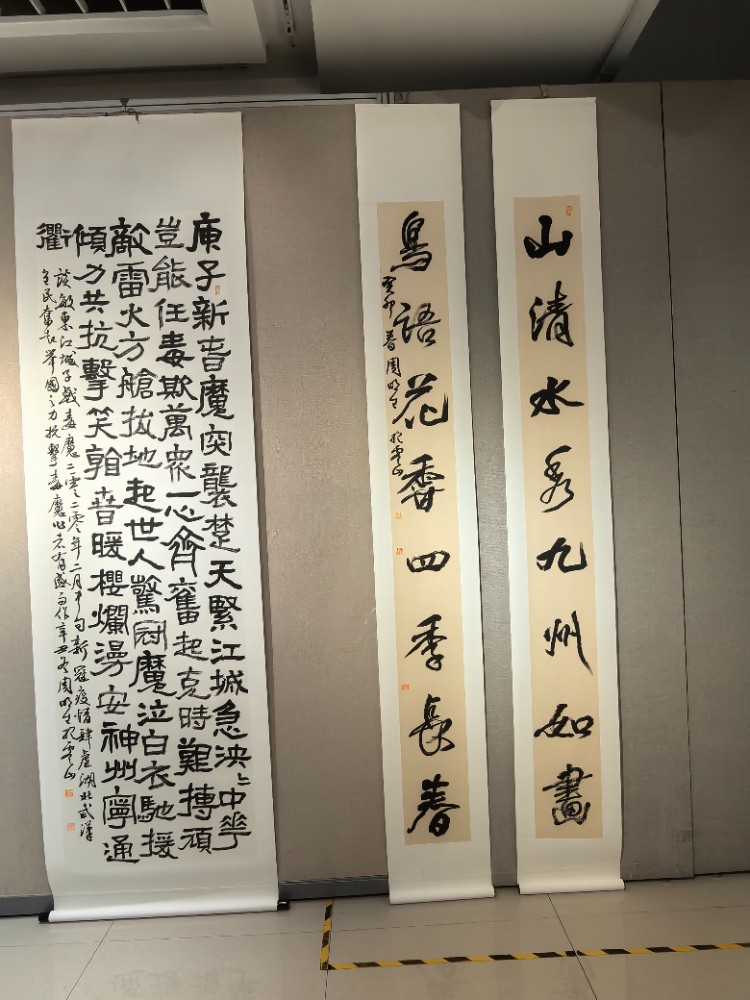 山清水秀九州如畫
鳥語花香四季長春
癸卯春周明
庚子新春魔突襲楚天緊江城急泱〻中華
豈能任毒欺萬衆一心齊奮起克時難搏頑
敵雷火方艙拔地起世人驚冠魔泣白衣馳援
傾力共抗擊笑翰春暖櫻爛漫安神州寧通
衢
江城子戰毒魔二零二零年二月中旬新冠疫情肆虐湖北武漢
全民奮起舉國之力抗擊毒魔有感而作辛丑冬周明